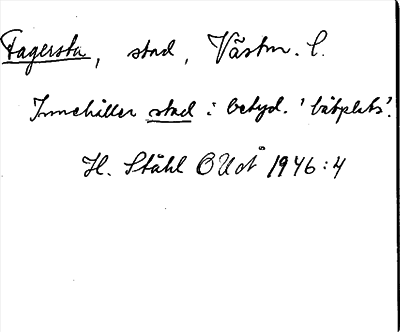 Fagersta, stad, Västm. l.
Innehåller stad i betyd. 'båtplats'.
H. Ståhl OUoÅ 1946:4